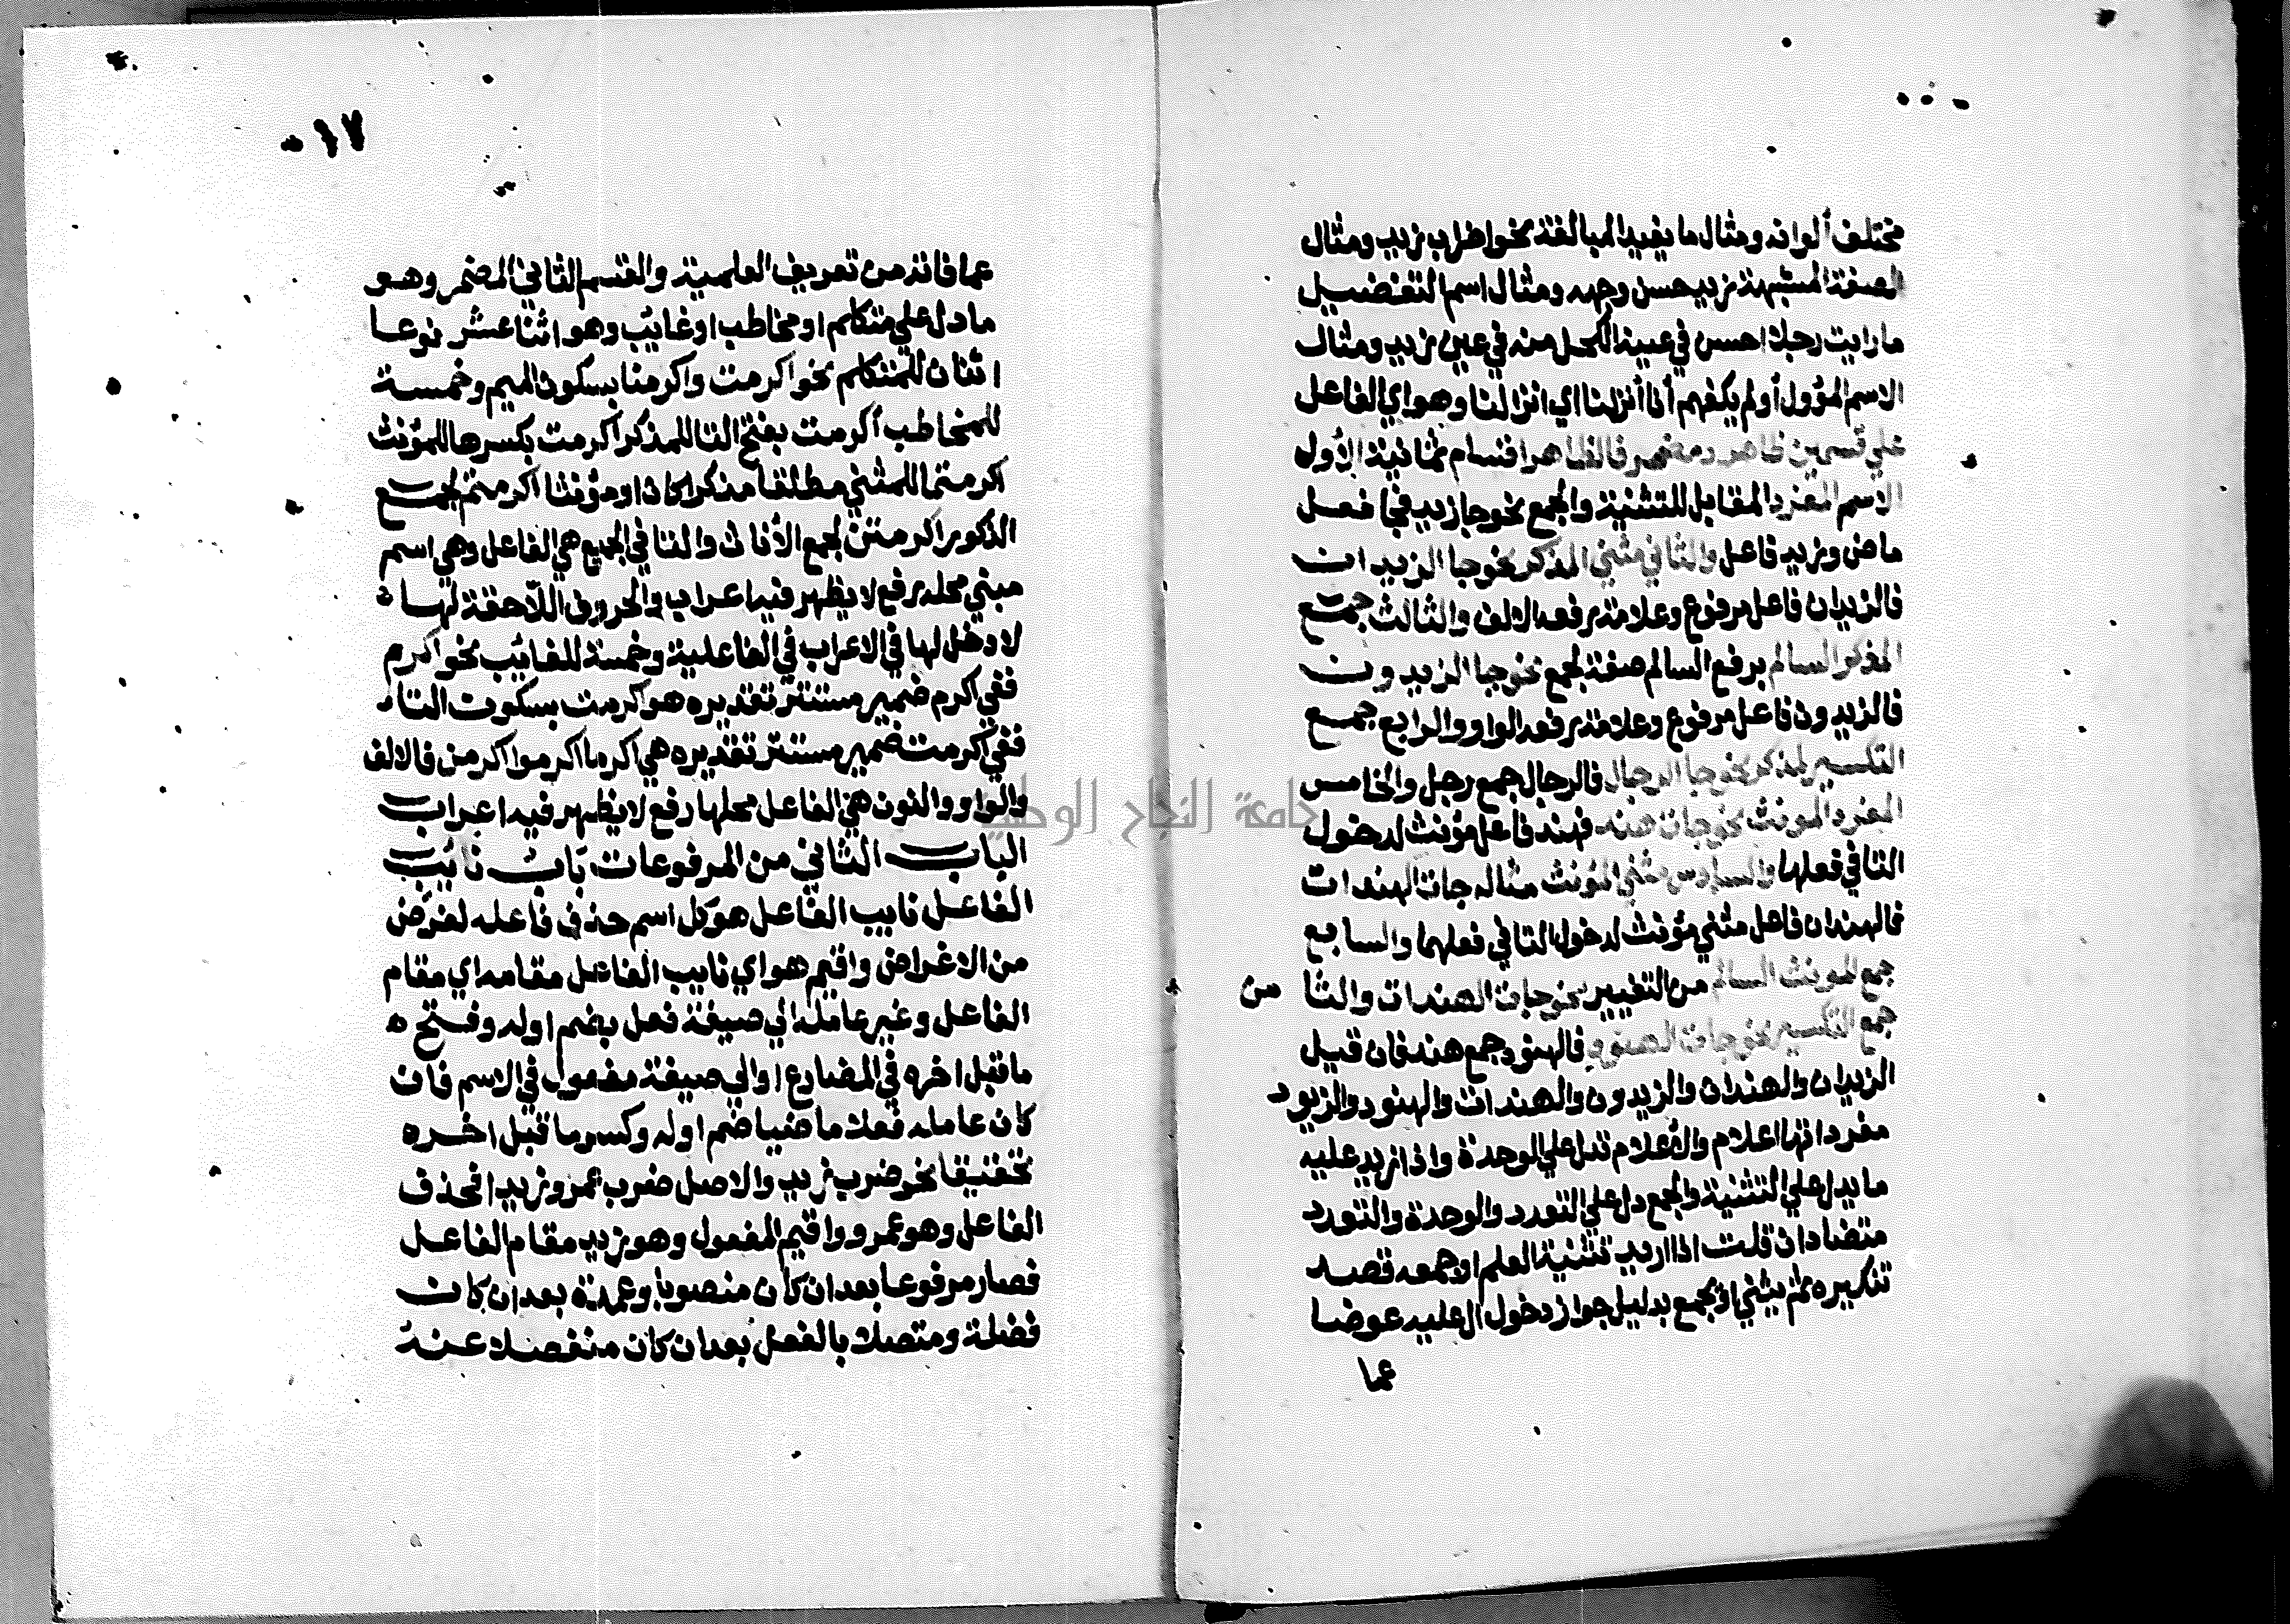 مختلف ألوانه ومثال ما يفيد المبالغة نحو اضراب زيد ومثال
الصفة المشبهة زيد حسن وجهه ومثال اسم التفضيل
ما رايت رجلا احسن في عينه الكحل منه في عين زيد ومثال
الاسم المؤول أولم يكفهم أنا أنزلنا اي انزالنا وهو اي الفاعل
علي قسمين ظاهر ومضمر فالظاهر اقسام ثمانية الأول
الاسم المفرد المقابل للتثنية والجمع نحو جا زيد فجا فعل
ماض وزيد فاعل والثاني مثني المذكر نحو جا الزيدان
فالزيدان فاعل مرفوع وعلامة رفعه الالف والثالث جمع
المذكر السالم برفع السالم صفة لجمع نحو جا الزيدون
فالزيدون فاعل مرفوع وعلامة رفعه الواو والرابع جمع
التكسير لمذكر نحو جا الرجال فالرجال جمع رجل والخامس
المفرد المونث نحو جات هند فهند فاعل مؤنث لدخول
التا في فعلها والسادس مثني المؤنث مثاله جات الهندان
فالهندان فاعل مثني مؤنث لدخول التا في فعلهما والسابع
جمع المونث السالم من التغيير نحو جات الهندات والثا من
جمع التكسير نحو جات الهنود فالهنود جمع هند فان قيل
الزيدان والهندان والزيدون والهندات والهنود والزيود
مفرداتها اعلام والأعلام تدل علي الوحدة واذا زيد عليه
ما يدل علي التثنية والجمع دل علي التعدد والوحدة والتعدد
متضادان قلت اذا اريد تثنية العلم او جمعه قصد
تنكيره ثم يثني او يجمع بدليل جواز دخول ال عليه عوضا
عما
١٧
عما فاته من تعريف العلمية والقسم الثاني المضمر وهو
ما دل علي متكلم او مخاطب او غايب وهو اثنا عشر نوعا
اثنان للمتكلم نحو اكرمت واكرمنا بسكون الميم وخمسة
للمخاطب أكرمت بفتح التا للمذكر أكرمت بكسرها للمؤنث
اكرمتما للمثني مطلقا مذكرا كان او مؤنثا اكرمتم لجمع
الذكور اكرمتن لجمع الأناث والتا في الجميع هي الفاعل وهي اسم
مبني محله رفع لا يظهر فيه اعراب والحروف اللاحقة لها
لا دخل لها في الاعراب في الفاعلية وخمسة للغايب نحو اكرم
ففي اكرم ضمير مستتر تقديره هو اكرمت بسكون التاء
ففي اكرمت ضمير مستتر تقديره هي اكرما اكرموا اكرمن فالالف
والواو والنون هي الفاعل محلها رفع لا يظهر فيه اعراب
الباب الثاني من المرفوعات باب نايب
الفاعل نايب الفاعل هو كل اسم حذف فاعله لغرض
من الاغراض واقيم هو اي نايب الفاعل مقامه اي مقام
الفاعل وغير عامله الي صيغة فعل بضم اوله وفتح
ما قبل اخره في المضارع او الي صيغة مفعول في الاسم فان
كان عامله فعلا ماضيا ضم اوله وكسر ما قبل اخره
تحقيقا نحو ضرب زيد والاصل ضرب عمرو زيدا فحذف
الفاعل وهو عمرو واقيم المفعول وهو زيد مقام الفاعل
فصار مرفوعا بعد ان كان منصوبا وعمدة بعد ان كان
فضلة ومتصلا بالفعل بعد ان كان منفصلا عنه
جامعة النجاح الوطنية